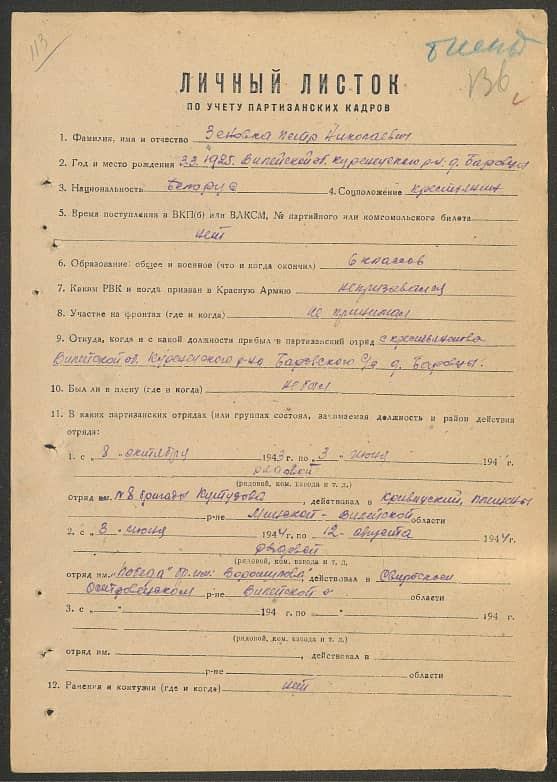 113
ЛИЧНЫЙ ЛИСТОК
ПО УЧЕТУ ПАРТИЗАНСКИХ КАДРОВ
1. Фамилия, имя и отчество Зеновка Петр Николаевич
2. Год и место рождения 3.3.1925. Вилейской об. Куренецкого р-н. д. Баровцы
3. Национальность Беларус 4. Соцположение крестьянин
5. Время поступления в ВКП(б) или ВЛКСМ, № партийного или комсомольского билета
нет
6. Образование: общее и военное (что и когда окончил) 6 классов
7. Каким РВК и когда призван в Красную Армию непризывался
8. Участие на фронтах (где и когда) не принимал
9. Откуда, когда и с какой должности прибыл в партизанский отряд с крестьянства
Вилейской об. Куренецкого р-на Баровского с/с д. Баровцы.
10. Был ли в плену (где и когда) небыл
11. В каких партизанских отрядах (или группах состоял, занимаемая должность и район действия
отряда:
1. с " 8 " октября 1943 г. по " 3 " июня 194 г.
рядовой
(рядовой, ком. взвода и т. д.)
отряд им. №8 бригады Кутузова, действовал в Кривичский,
р-не Минской - Вилейской области
2. с " 3 " июня 1944 г. по " 12 " августа 1944 г.
рядовой
(рядовой, ком. взвода и т. д.
отряд им. "Победа" бр. им. Ворошилова, действовал в Свирском
р-не Вилейской о области
3. с " " 194 г. по " " 194 г.
(рядовой, ком. взвода и т. п.)
отряд им. , действовал в
р-не области
12. Ранения и контузии (где и когда) нет